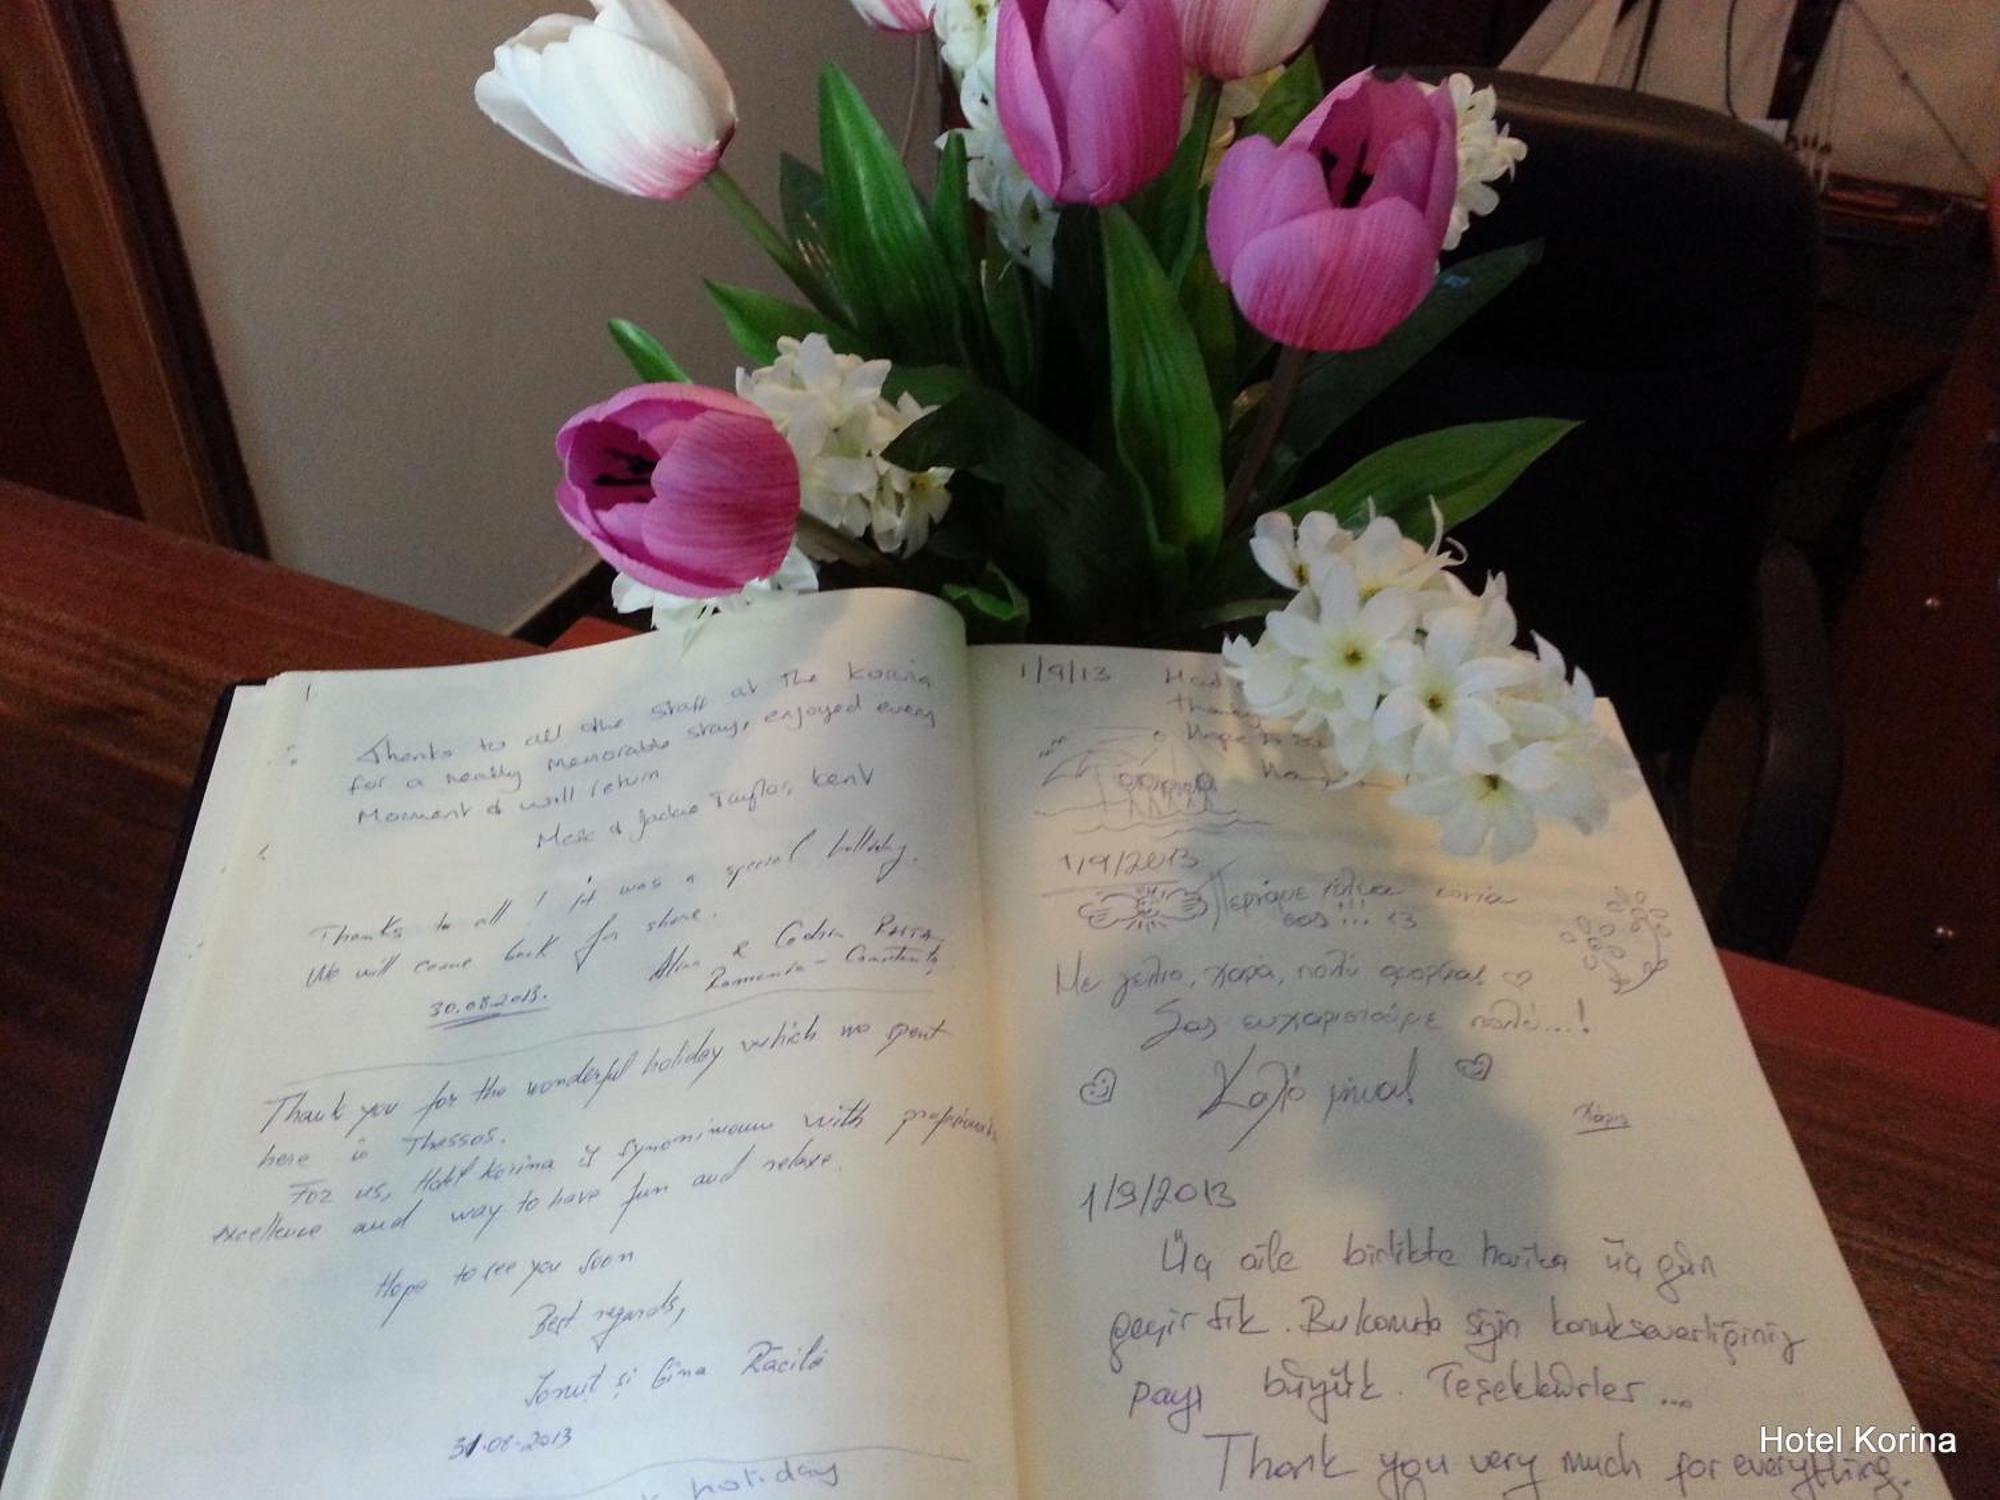 Thanks to all the staff at the Korina
for a really memorable stay, enjoyed every
moment & will return
& Jackie Taylor, Kent
Thanks to all! it was a special holliday.
We will come back for shore.
Alina & Codrin
Romania - Constanta
30.08.2013.
Thank you for the wonderful holiday which we spent
here in Thassos.
For us, Hotel Korina is synonimoum with
excellence and way to have fun and relaxe.
Hope to see you soon
Best regards,
Ionuț și Gina Răcilă
31.08.2013
holiday
1/9/13
Hope to
1/9/2013
Περάσαμε τέλεια κοντά
σας!!! <3
Με γέλιο, χαρά, πολύ ομορφιά!
Σας ευχαριστούμε πολύ...!
Καλό μήνα!
1/9/2013
Üç aile birlikte harika üç gün
geçirdik. Bu konuda sizin konukseverliğiniz
payı büyük. Teşekkürler ...
Thank you very much for everything.
Hotel Korina